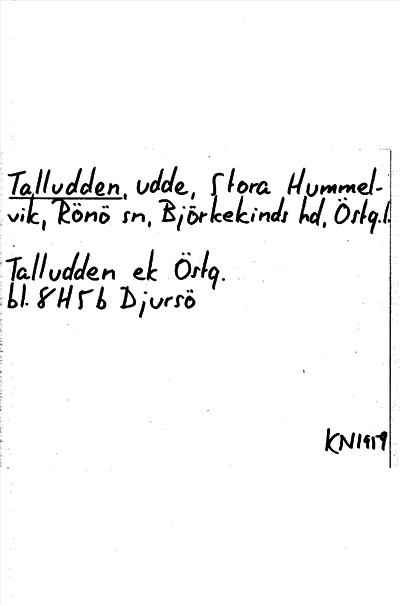 Talludden, udde, Stora Hummel-
vik, Rönö sn, Björkekinds hd, Östg.l.
Talludden ek Östg.
bl. 8H5b Djursö
KN1959